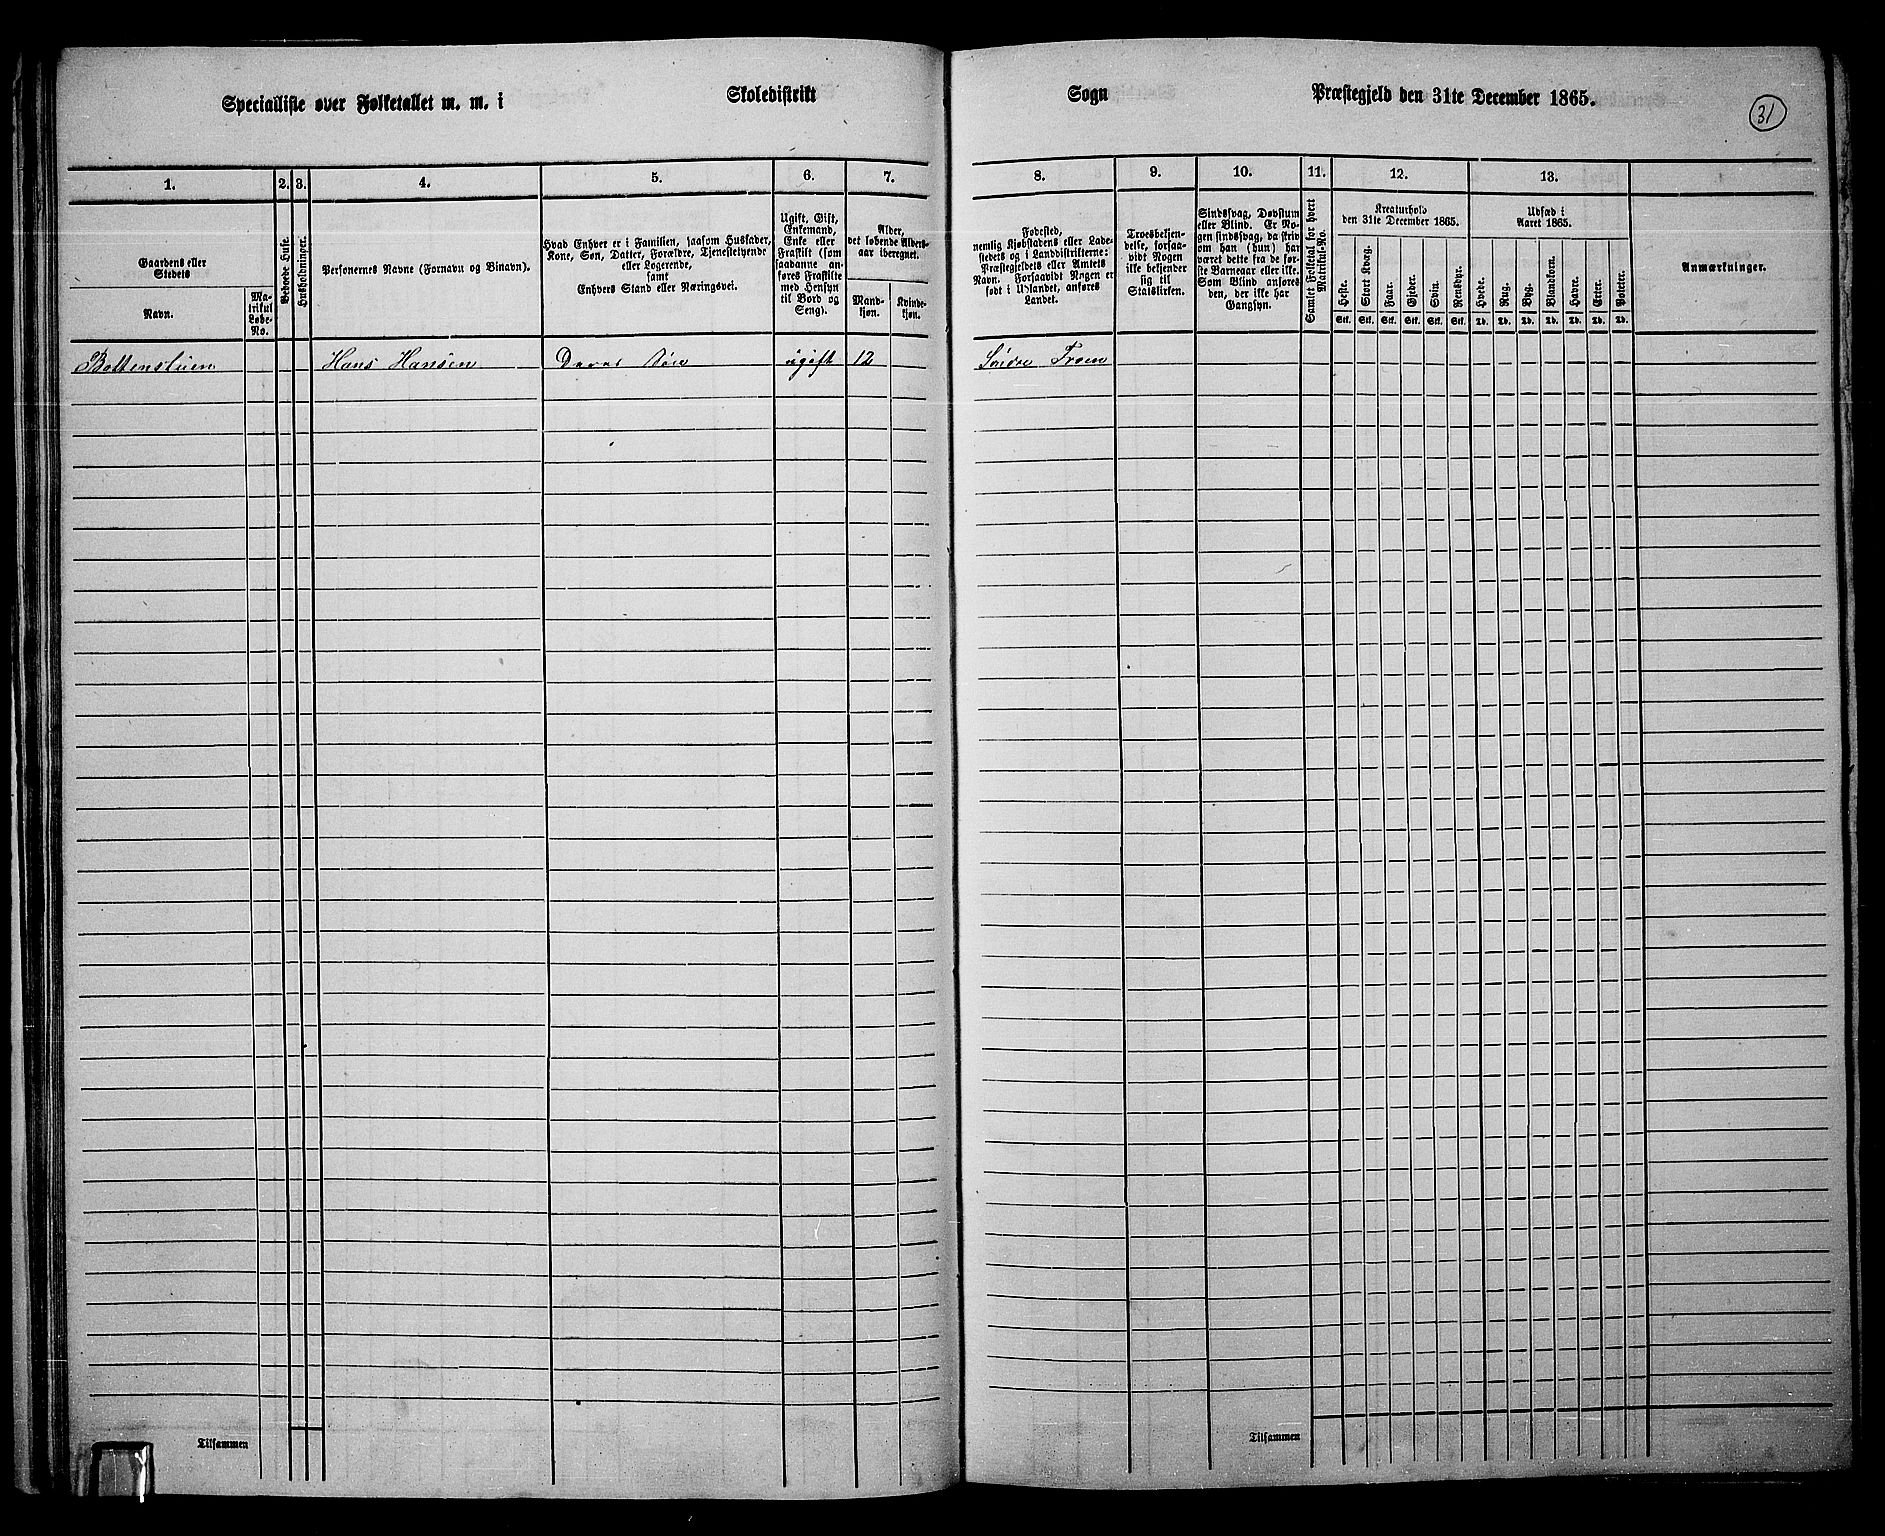 Specialliste over Folketallet m. m. i Skoledistrikt Sogn Præstegjeld den 31te December 1865.
31
1. 2. 3. 4. 5. 6. 7. 8. 9. 10. 11. 12. 13.
Gaardens eller
Stedets
Navn.
Ma-
trikul
Løbe-
No.
Beboede Huse.
Husholdninger.
Personernes Navne (Fornavn og Binavn).
Hvad Enhver er i Familien, saasom Husfader,
Kone, Søn, Datter, Forældre, Tjenestetyende
eller Logerende,
samt
Enhvers Stand eller Næringsvei.
Ugift, Gift,
Enkemand,
Enke eller
Fraskilt (som
saadanne an-
føres Fraskilte
med Hensyn
til Bord og
Seng).
Alder,
det løbende Alders-
aar iberegnet.
Mand-
kjøn.
Kvinde-
kjøn.
Fødested,
nemlig Kjøbstadens eller Lade-
stedets og i Landdistrikterne:
Præstegjeldets eller Amtets
Navn. Forsaavidt Nogen er
født i Udlandet, anføres
Landet.
Troesbekjen-
delse, forsaa-
vidt Nogen
ikke bekjender
sig til
Statskirken.
Sindssvag, Døvstum
eller Blind. Er No-
gen sindssvag, da skriv
om han (hun) har
været dette fra de før-
ste Barneaar eller ikke.
Som Blind anføres
den, der ikke har
Gangsyn.
Samlet Folketal for hvert
Matrikul-No.
Kreaturhold
den 31te December 1865.
Heste. Stort Kvæg. Faar. Gjeder. Svin. Rensdyr.
Stk. Stk. Stk. Stk. Stk. Stk.
Udsæd i
Aaret 1865.
Hvede. Rug. Byg. Blandkorn. Havre. Erter. Poteter.
Td. Td. Td. Td. Td. Td. Td.
Anmærkninger.
Hans Hansen Deres Søn ugift 12 Søndre Fron
Tilsammen Tilsammen